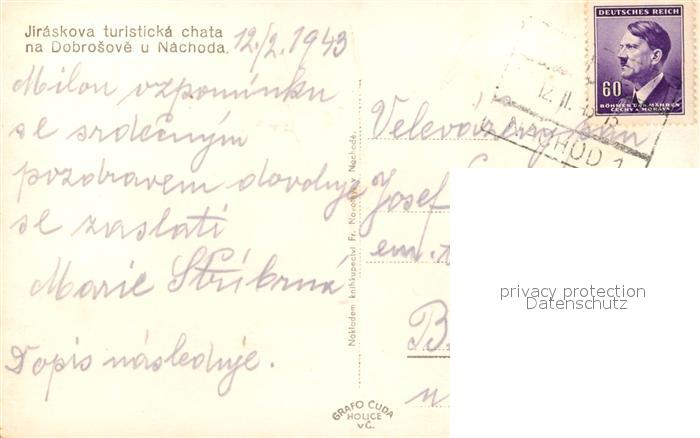 Jiráskova turistická chata
na Dobrošově u Náchoda.
12/2. 1943
Milou vzpomínku
se srdečným
pozdravem dovoluje
se zaslati
Marie Stříbrná
Dopis následuje.
Nakladem knihkupectví Fr. Novotný v Náchodě.
GRAFO ČUDA
HOLICE
v Č.
DEUTSCHES REICH
60
BÖHMEN UND MÄHREN
ČECHY a MORAVA
12. II.
NÁCHOD 1
Velevážený pan
Josef
em.
B
u
privacy protection
Datenschutz